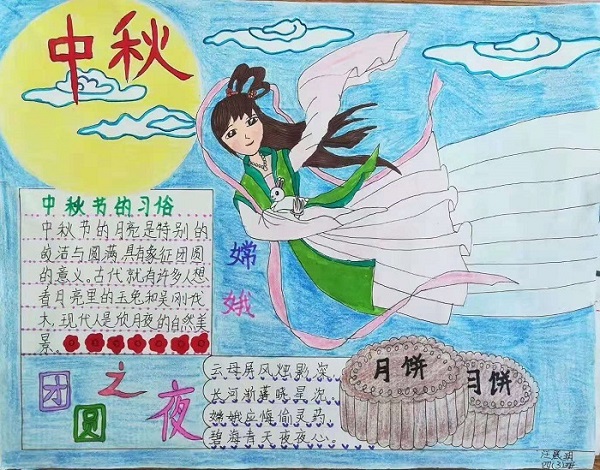 中秋
中秋节的习俗
中秋节的月亮是特别的
皎洁与圆满,具有象征团圆
的意义。古代就有许多人想
着月亮里的玉兔和吴刚伐
木,现代人是欣月夜的自然美
景。
嫦娥
团圆之夜
云母屏风烛影深
长河渐落晓星沉
嫦娥应悔偷灵药,
碧海青天夜夜心。
月饼
月饼